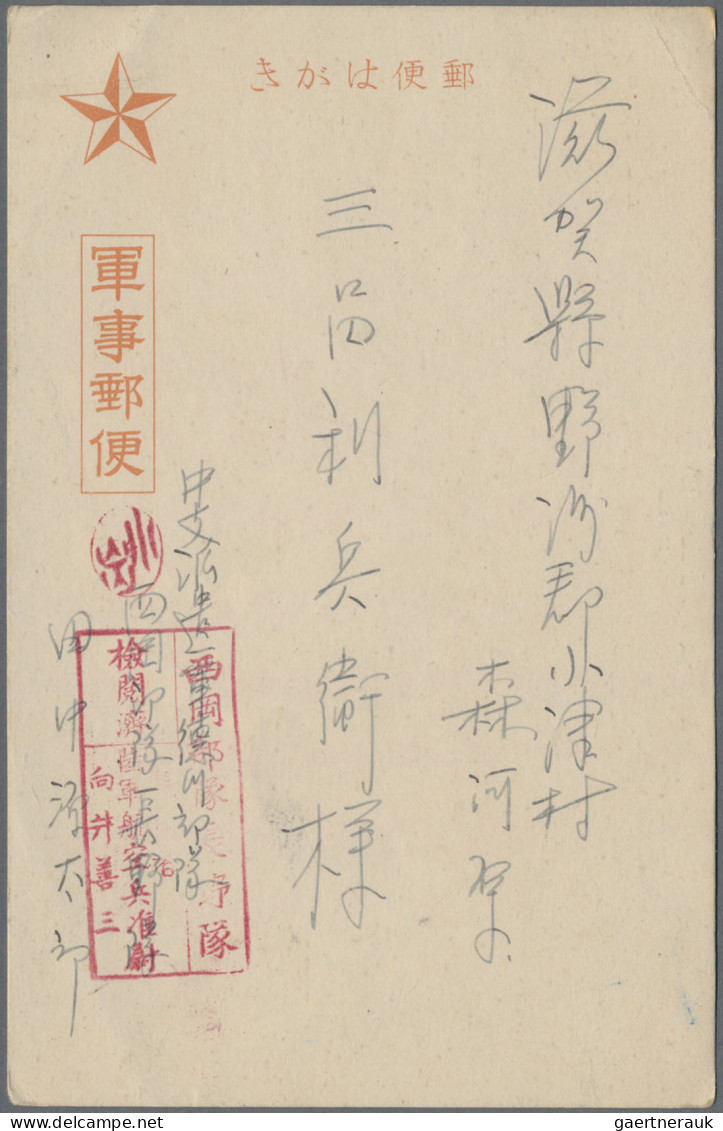 郵便はがき
滋賀縣野洲郡小津村
森河原
三品利兵衛様
軍事郵便
中支派遣軍徳川部隊
西岡部隊長野隊
田中源太郎
西岡部隊長野隊
検閲濟
陸軍航空兵准尉
向井善三
gaertnerauk